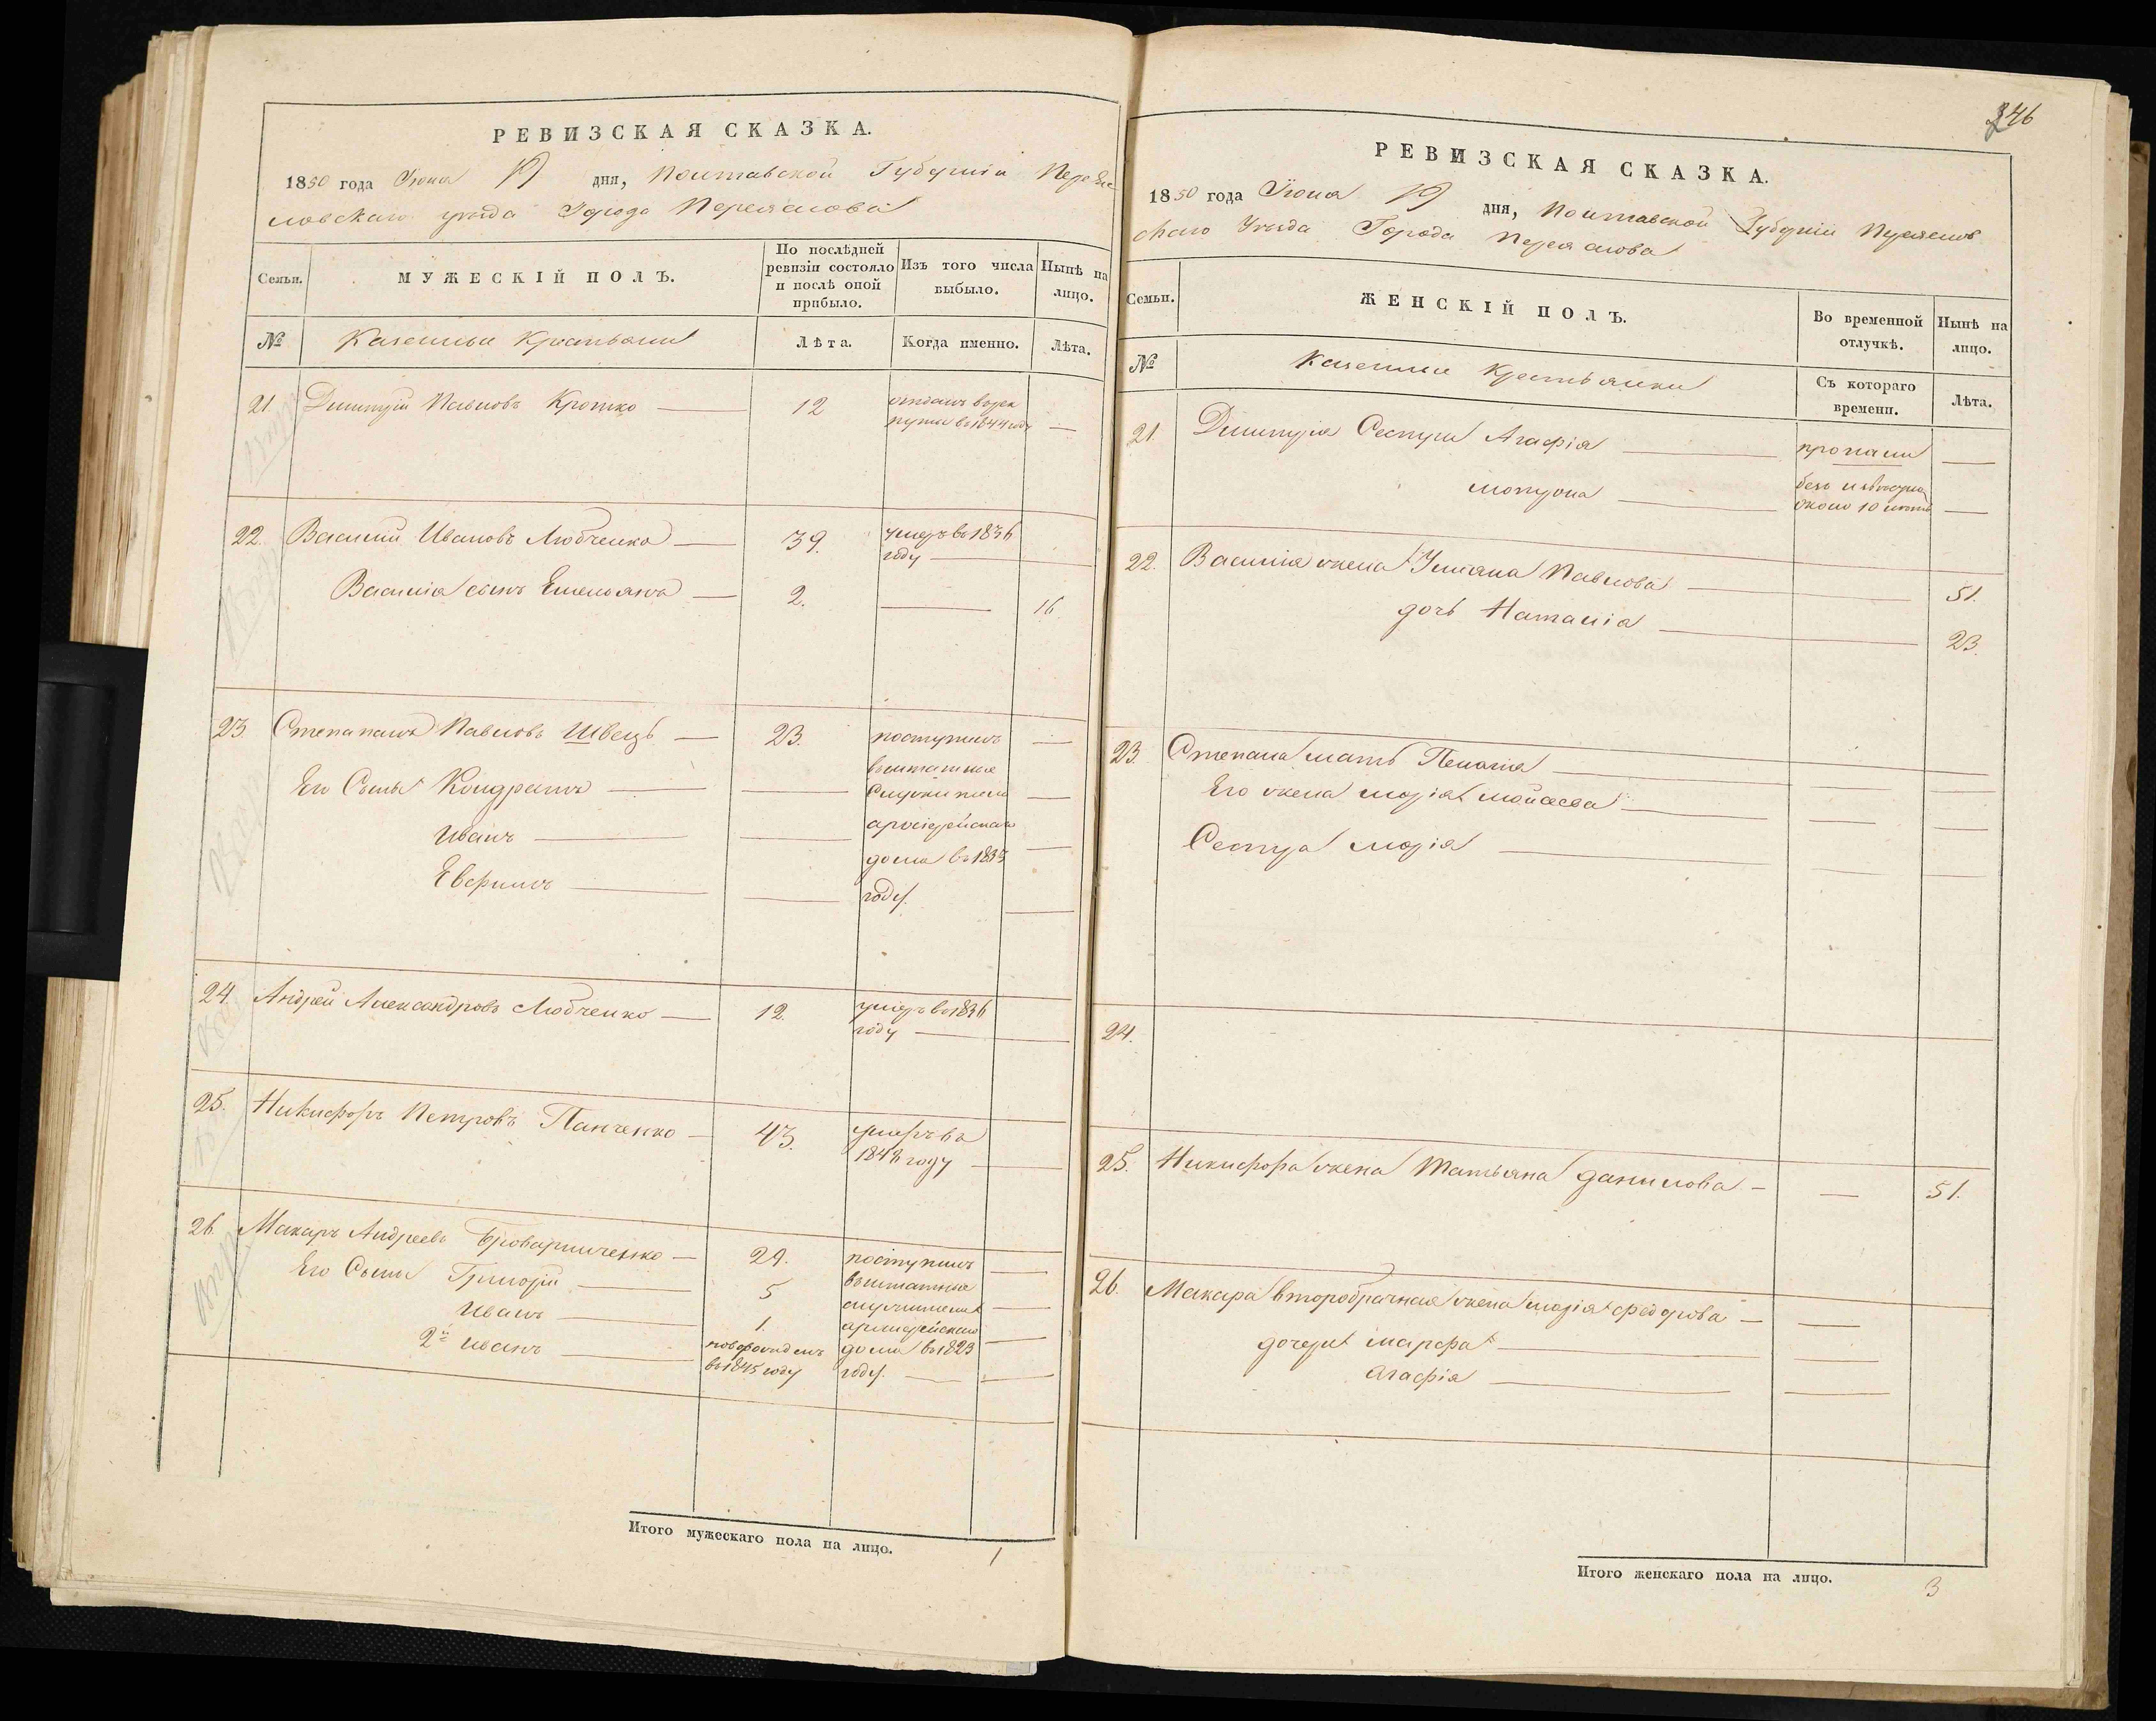 РЕВИЗСКАЯ СКАЗКА.
1850 года Іюня 19 дня, Полтавской Губерніи Перея
словскаго уезда Города Переяслова
Семьи. МУЖЕСКІЙ ПОЛЪ. По послѣдней ревизіи состояло и послѣ оной прибыло. Изъ того числа выбыло. Нынѣ на лицо.
№ Казенные Крестьяне Лѣта. Когда именно. Лѣта.
21. Дмитрій Павловъ Кротко — 12 отданъ врек
руты въ 1844 году —
22. Василій Ивановъ Любченко — 39. умеръ въ 1836
году —
Василія сынъ Емельянъ — 2. — 16.
23 Степанъ Павловъ Швецъ — 23. поступилъ —
въ штатные
Его Сыны Кондратъ — — служители —
архіерейскаго
Иванъ — — дома въ 1835 —
Евфимъ — — году. —
24. Андрей Александровъ Любченко — 12. умеръ въ 1836
году —
25. Никифоръ Петровъ Панченко — 43. умеръ въ
1843 году —
26. Макаръ Андреевъ Броварниченко — 29. поступилъ —
Его Сыны Григорій — 5 въ штатные
служители —
Иванъ — 1. архиерейскаго
2й Иванъ — новорожденъ дома въ 1823 —
въ 1845 году году. — —
Итого мужескаго пола на лицо. 1
346
РЕВИЗСКАЯ СКАЗКА.
1850 года Іюня 19 дня, Полтавской Губерніи Переяслов
скаго Уезда Города Переяслова
Семьи. ЖЕНСКІЙ ПОЛЪ. Во временной отлучкѣ. Нынѣ на лицо.
№ Казенные Крестьянки Съ котораго времени. Лѣта.
21. Дмитрія Сестры Агафія — пропали —
безъ известно
Мотрона — около 10 летъ —
22. Василія жена Ульяна Павлова — 51.
дочь Наталія — 23.
23. Степана мать Пелагія — — —
Его жена Марія Мойсеева — — —
Сестра Марія — — —
24.
25. Никифора жена Татьяна Данилова — — 51.
26. Макара второбрачная жена Марія Федорова — —
дочери Марфа — —
Агафія — —
Итого женскаго пола на лицо. 3